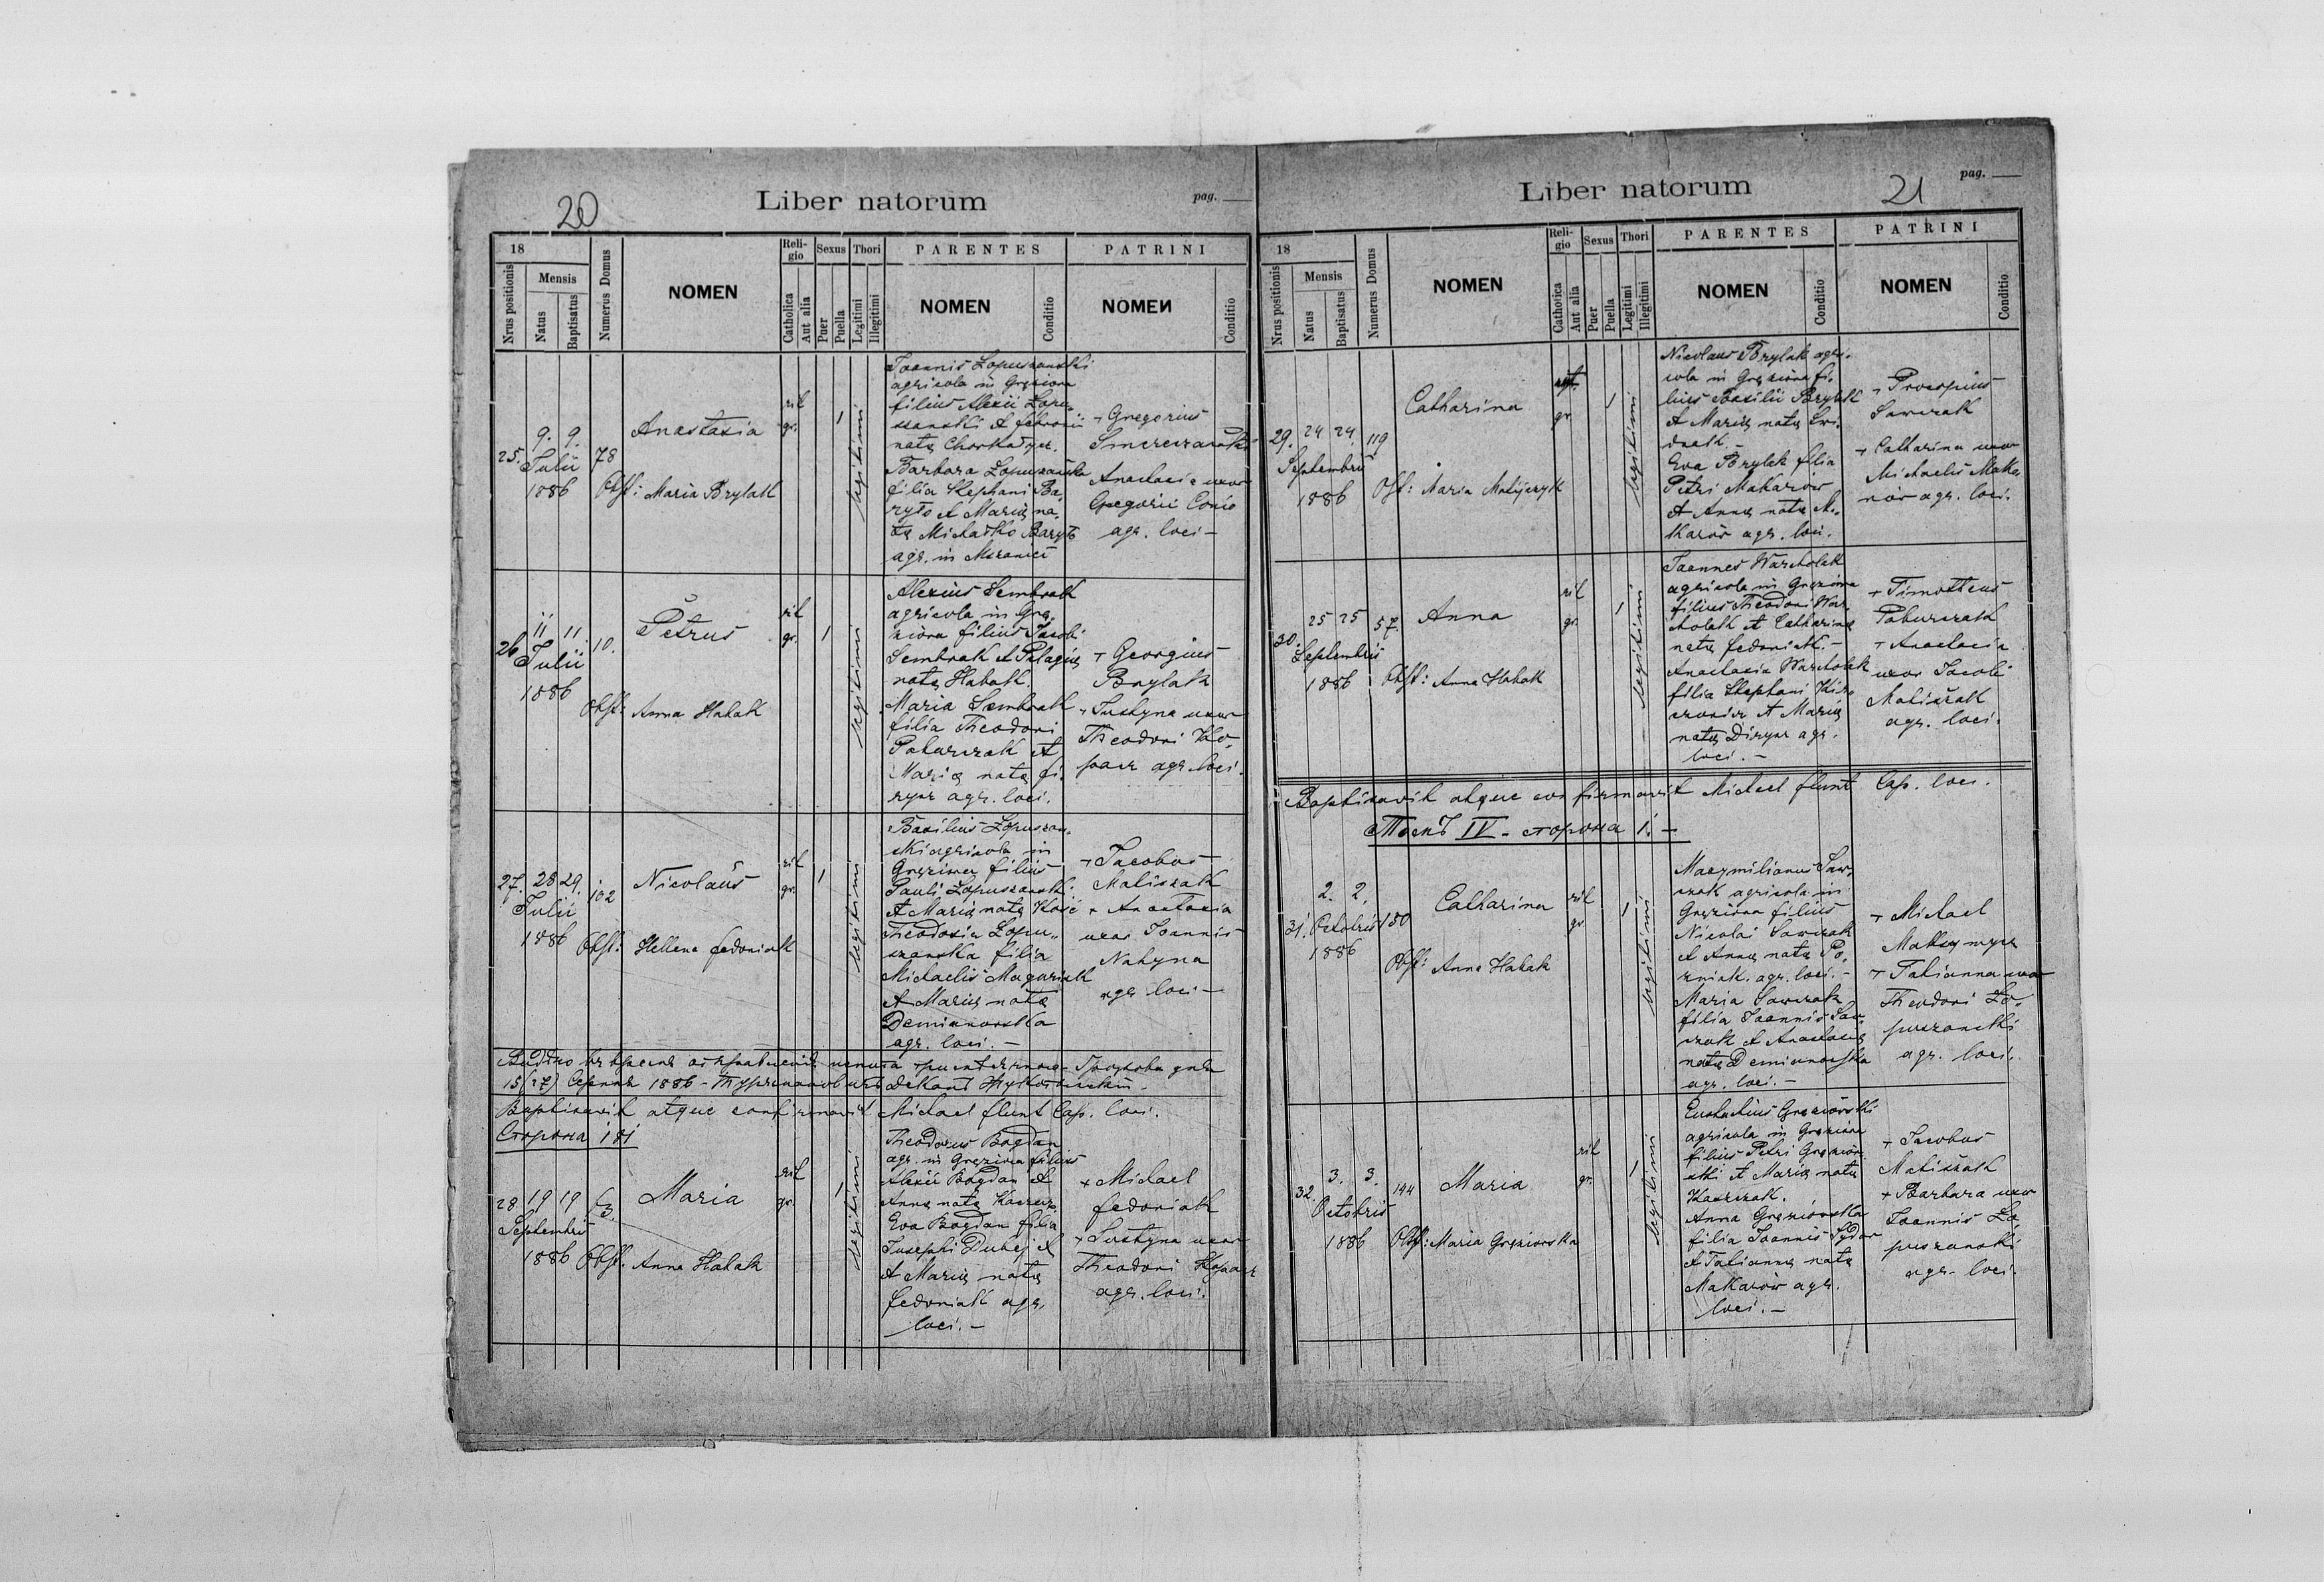 20
Liber natorum
pag.
18
Nrus positionis
Mensis
Natus
Baptisatus
Numerus Domus
NOMEN
Reli-
gio
Catholica
Aut alia
Sexus
Puer
Puella
Thori
Legitimi
Illegitimi
PARENTES
NOMEN
Conditio
PATRINI
NOMEN
Conditio
25.
9. 9.
Julii
1886
78
Anastasia
Obst: Maria Brylak
rit
gr.
1
legitimi
Joannis Łopuszanski
agricola in Gręziowa
filius Alexii Łopu-
szanski et
natę
Barbara Łopuszańska
filia Stephani Ba-
ryło et Marię na-
tę Michaśko Baryło
agr. in Mszaniec
+ Gregorius
Anastasia uxor
Gregorii
agr. loci –
26
11 11.
Julii
1886
10.
Petrus
Obst: Anna Habak
rit
gr.
1
legitimi
Alexius Sembrak
agricola in Grę-
ziowa filius Jacobi
Sembrak et Pelagię
natę Habak.
Maria Sembrak
filia Theodori
Paburczak et
Marię natę
agr. loci.
+ Georgius
Brylak
+ Justyna uxor
Theodori Ko-
pacz agr. loci.
27.
28 29.
Julii
1886
102
Nicolaus
Obst: Hellena Fedoniak
rit
gr.
1
legitimi
Basilius Łopuszan-
ski agricola in
Gręziowa filius
Pauli Łopuszanski
et Marię natę Kość
Theodosia Łopu-
szanska filia
Michaelis
et Marię natę
Demianowska
agr. loci. –
+ Jacobus
Matiszak
+ Anastasia
uxor Joannis
Nahyna
agr. loci –
15/(27) Серпня 1886 –
Baptisavit atque confirmavit Michael Flunt Cap. loci.
Сторона 181
28.
19 19
Septembris
1886
63.
Maria
Obst. Anna Habak
rit
gr.
1
legitimi
Theodorus Bogdan
agr. in Gręziowa filius
Alexii Bogdan et
Annę natę
Eva Bogdan filia
Josephi Dubej et
et Marię natę
Fedoniak agr.
loci. –
+ Michael
Fedoniak
+ Justyna uxor
Theodori Kopacz
agr. loci.
Liber natorum
21
pag.
18
Nrus positionis
Mensis
Natus
Baptisatus
Numerus Domus
NOMEN
Reli-
gio
Catholica
Aut alia
Sexus
Puer
Puella
Thori
Legitimi
Illegitimi
PARENTES
NOMEN
Conditio
PATRINI
NOMEN
Conditio
29.
24 24.
Septembris
1886
119
Catharina
Obst: Maria Matijczyk
rit.
gr.
1
legitimi
Nicolaus Brylak agri-
cola in Gręziowa fi-
lius Basilii Brylak
et Marię natę
Eva Brylak filia
Petri Makarów
et Annę natę Ma-
karów agr. loci.
+ Procopius
Sawczak
+ Catharina uxor
Michaelis Maka-
rów agr. loci.
30.
25 25
Septembris
1886
57.
Anna
Obst: Anna Habak
rit
gr.
1
legitimi
Joannes Warcholak
agricola in Gręziowa
filius Theodori War-
cholak et Catharinę
natę Fedoniak. –
Anastasia Warcholak
filia Stephani
et Marię
natę agr.
loci. –
+ Timotheus
Paburczak
+ Anastasia
uxor Jacobi
Matiszak
agr. loci.
Baptisavit atque confirmavit Michael Flunt Cap. loci.
Томъ IV – сторона 1. –
31.
2. 2.
Octobris
1886
150
Catharina
Obst: Anna Habak
rit.
gr.
1
legitimi
Maxymilianus Saw-
czak agricola in
Gręziowa filius
Nicolai Sawczak
et Annę natę Po-
zniak. agr. loci. –
Maria Sawczak
filia Joannis Saw-
czak et Anastasię
natę Demianowska
agr. loci. –
+ Michael
Maksymycz
+ Tatianna uxor
Theodori Ło-
puszanski
agr. loci.
32.
3. 3.
Octobris
1886
144
Maria
Obst: Maria Gręziowska
rit
gr.
1
legitimi
Eustachius Gręziowski
agricola in Gręziowa
filius Petri Gręziow-
ski et Marię natę
Kaszczak.
Anna Gręziowska
filia Joannis Sydor
et Tatiannę natę
Makarów agr.
loci. –
+ Jacobus
Matiszak
+ Barbara uxor
Joannis Ło-
puszanski
agr. loci.